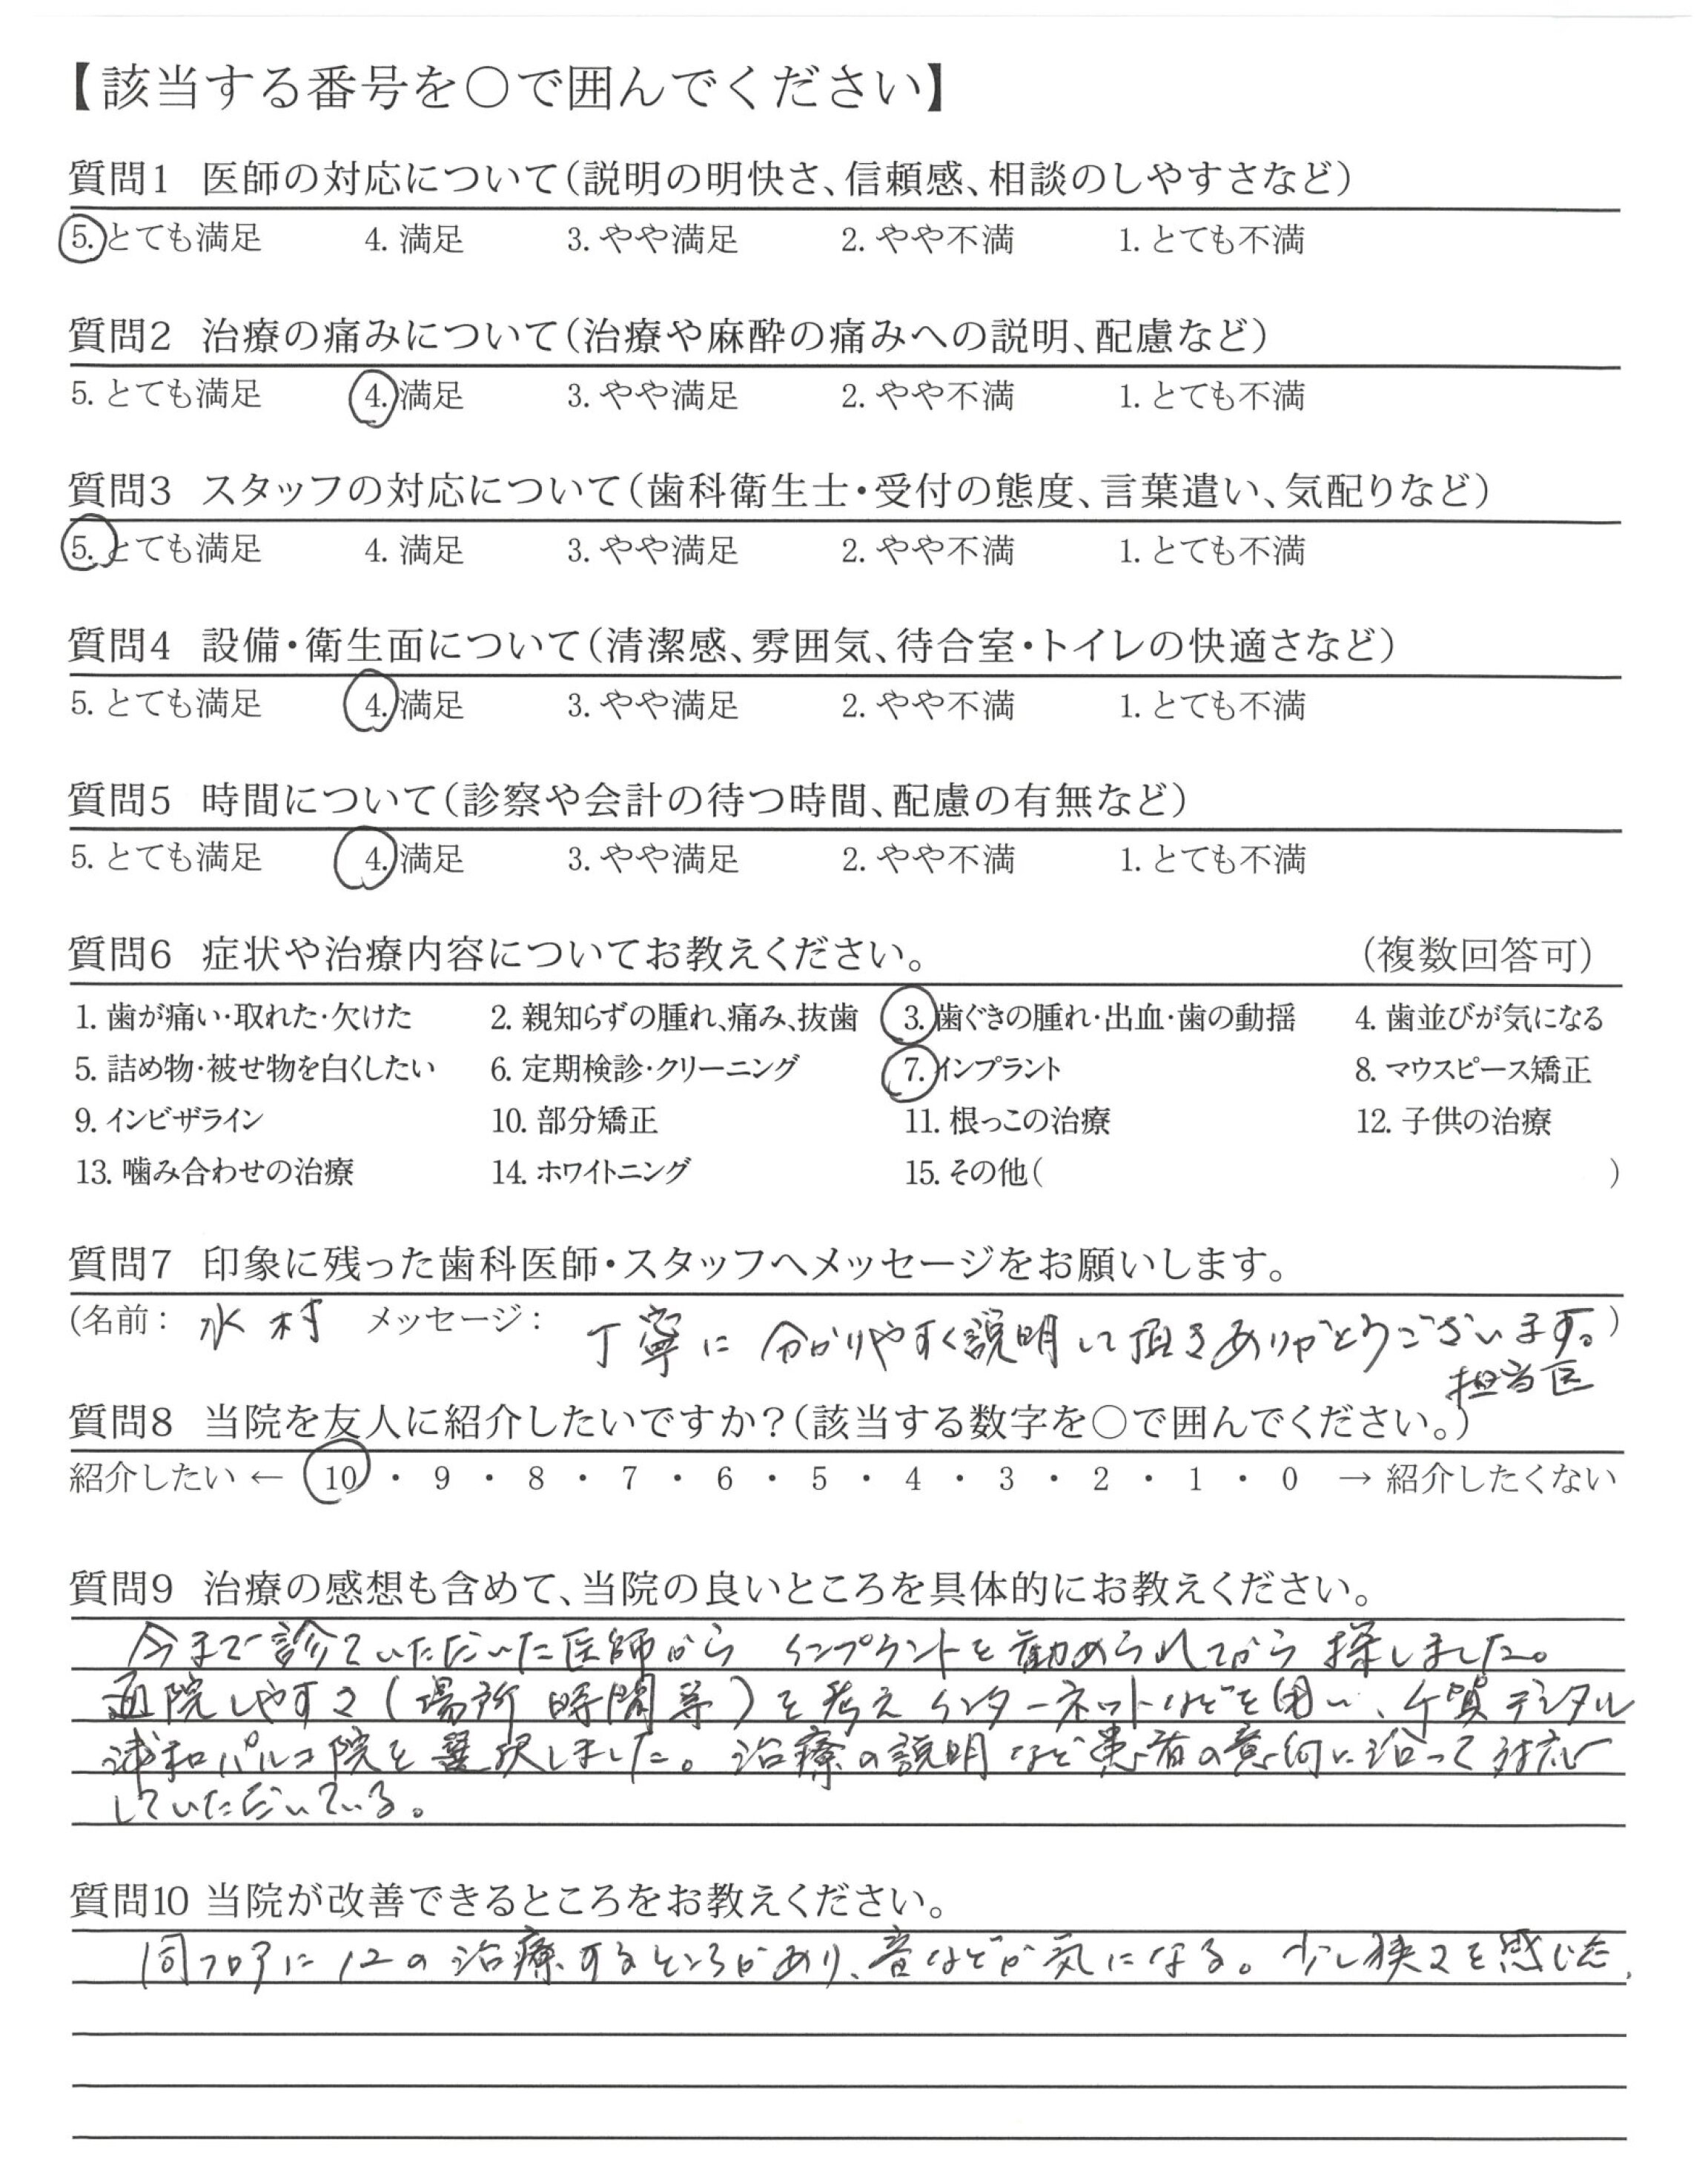 【該当する番号を○で囲んでください】
質問1 医師の対応について（説明の明快さ、信頼感、相談のしやすさなど）
5. とても満足 4. 満足 3. やや満足 2. やや不満 1. とても不満
質問2 治療の痛みについて（治療や麻酔の痛みへの説明、配慮など）
5. とても満足 4. 満足 3. やや満足 2. やや不満 1. とても不満
質問3 スタッフの対応について（歯科衛生士・受付の態度、言葉遣い、気配りなど）
5. とても満足 4. 満足 3. やや満足 2. やや不満 1. とても不満
質問4 設備・衛生面について（清潔感、雰囲気、待合室・トイレの快適さなど）
5. とても満足 4. 満足 3. やや満足 2. やや不満 1. とても不満
質問5 時間について（診察や会計の待つ時間、配慮の有無など）
5. とても満足 4. 満足 3. やや満足 2. やや不満 1. とても不満
質問6 症状や治療内容についてお教えください。 （複数回答可）
1. 歯が痛い・取れた・欠けた 2. 親知らずの腫れ、痛み、抜歯 3. 歯ぐきの腫れ・出血・歯の動揺 4. 歯並びが気になる
5. 詰め物・被せ物を白くしたい 6. 定期検診・クリーニング 7. インプラント 8. マウスピース矯正
9. インビザライン 10. 部分矯正 11. 根っこの治療 12. 子供の治療
13. 噛み合わせの治療 14. ホワイトニング 15. その他（ ）
質問7 印象に残った歯科医師・スタッフへメッセージをお願いします。
（名前： 水村 メッセージ： 丁寧に分かりやすく説明して頂きありがとうございます。）
担当医
質問8 当院を友人に紹介したいですか？（該当する数字を○で囲んでください。）
紹介したい ← 10 ・ 9 ・ 8 ・ 7 ・ 6 ・ 5 ・ 4 ・ 3 ・ 2 ・ 1 ・ 0 → 紹介したくない
質問9 治療の感想も含めて、当院の良いところを具体的にお教えください。
今まで診ていただいた医師から インプラントを勧められてから 探しました。
通院しやすさ（場所 時間等）を考え インターネットなどを用い、 デンタル
浦和パルコ院を選択しました。治療の説明など患者の意向に沿って対応
していただいている。
質問10 当院が改善できるところをお教えください。
同フロアに12の治療するところがあり、音などが気になる。少し狭さを感じた。